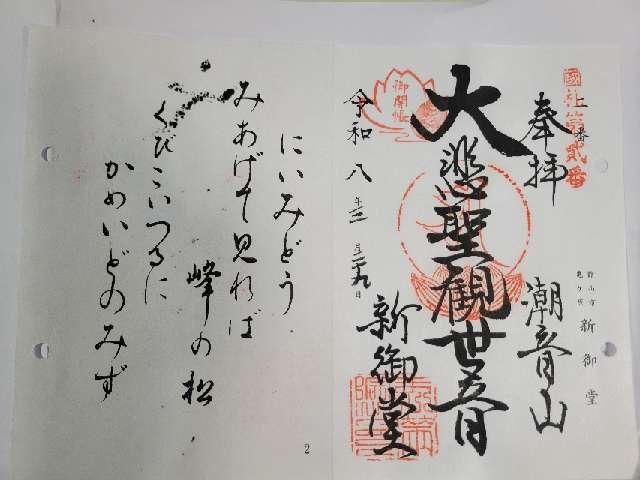 國社第貳番
奉拝
館山市
亀ケ原
新御堂
潮音山
大悲聖観世音
御開帳
新御堂
令和八年三月二十九日
にいみどう
みあげて見れば
峰の松
くびこいつるに
かめいどのみず
2